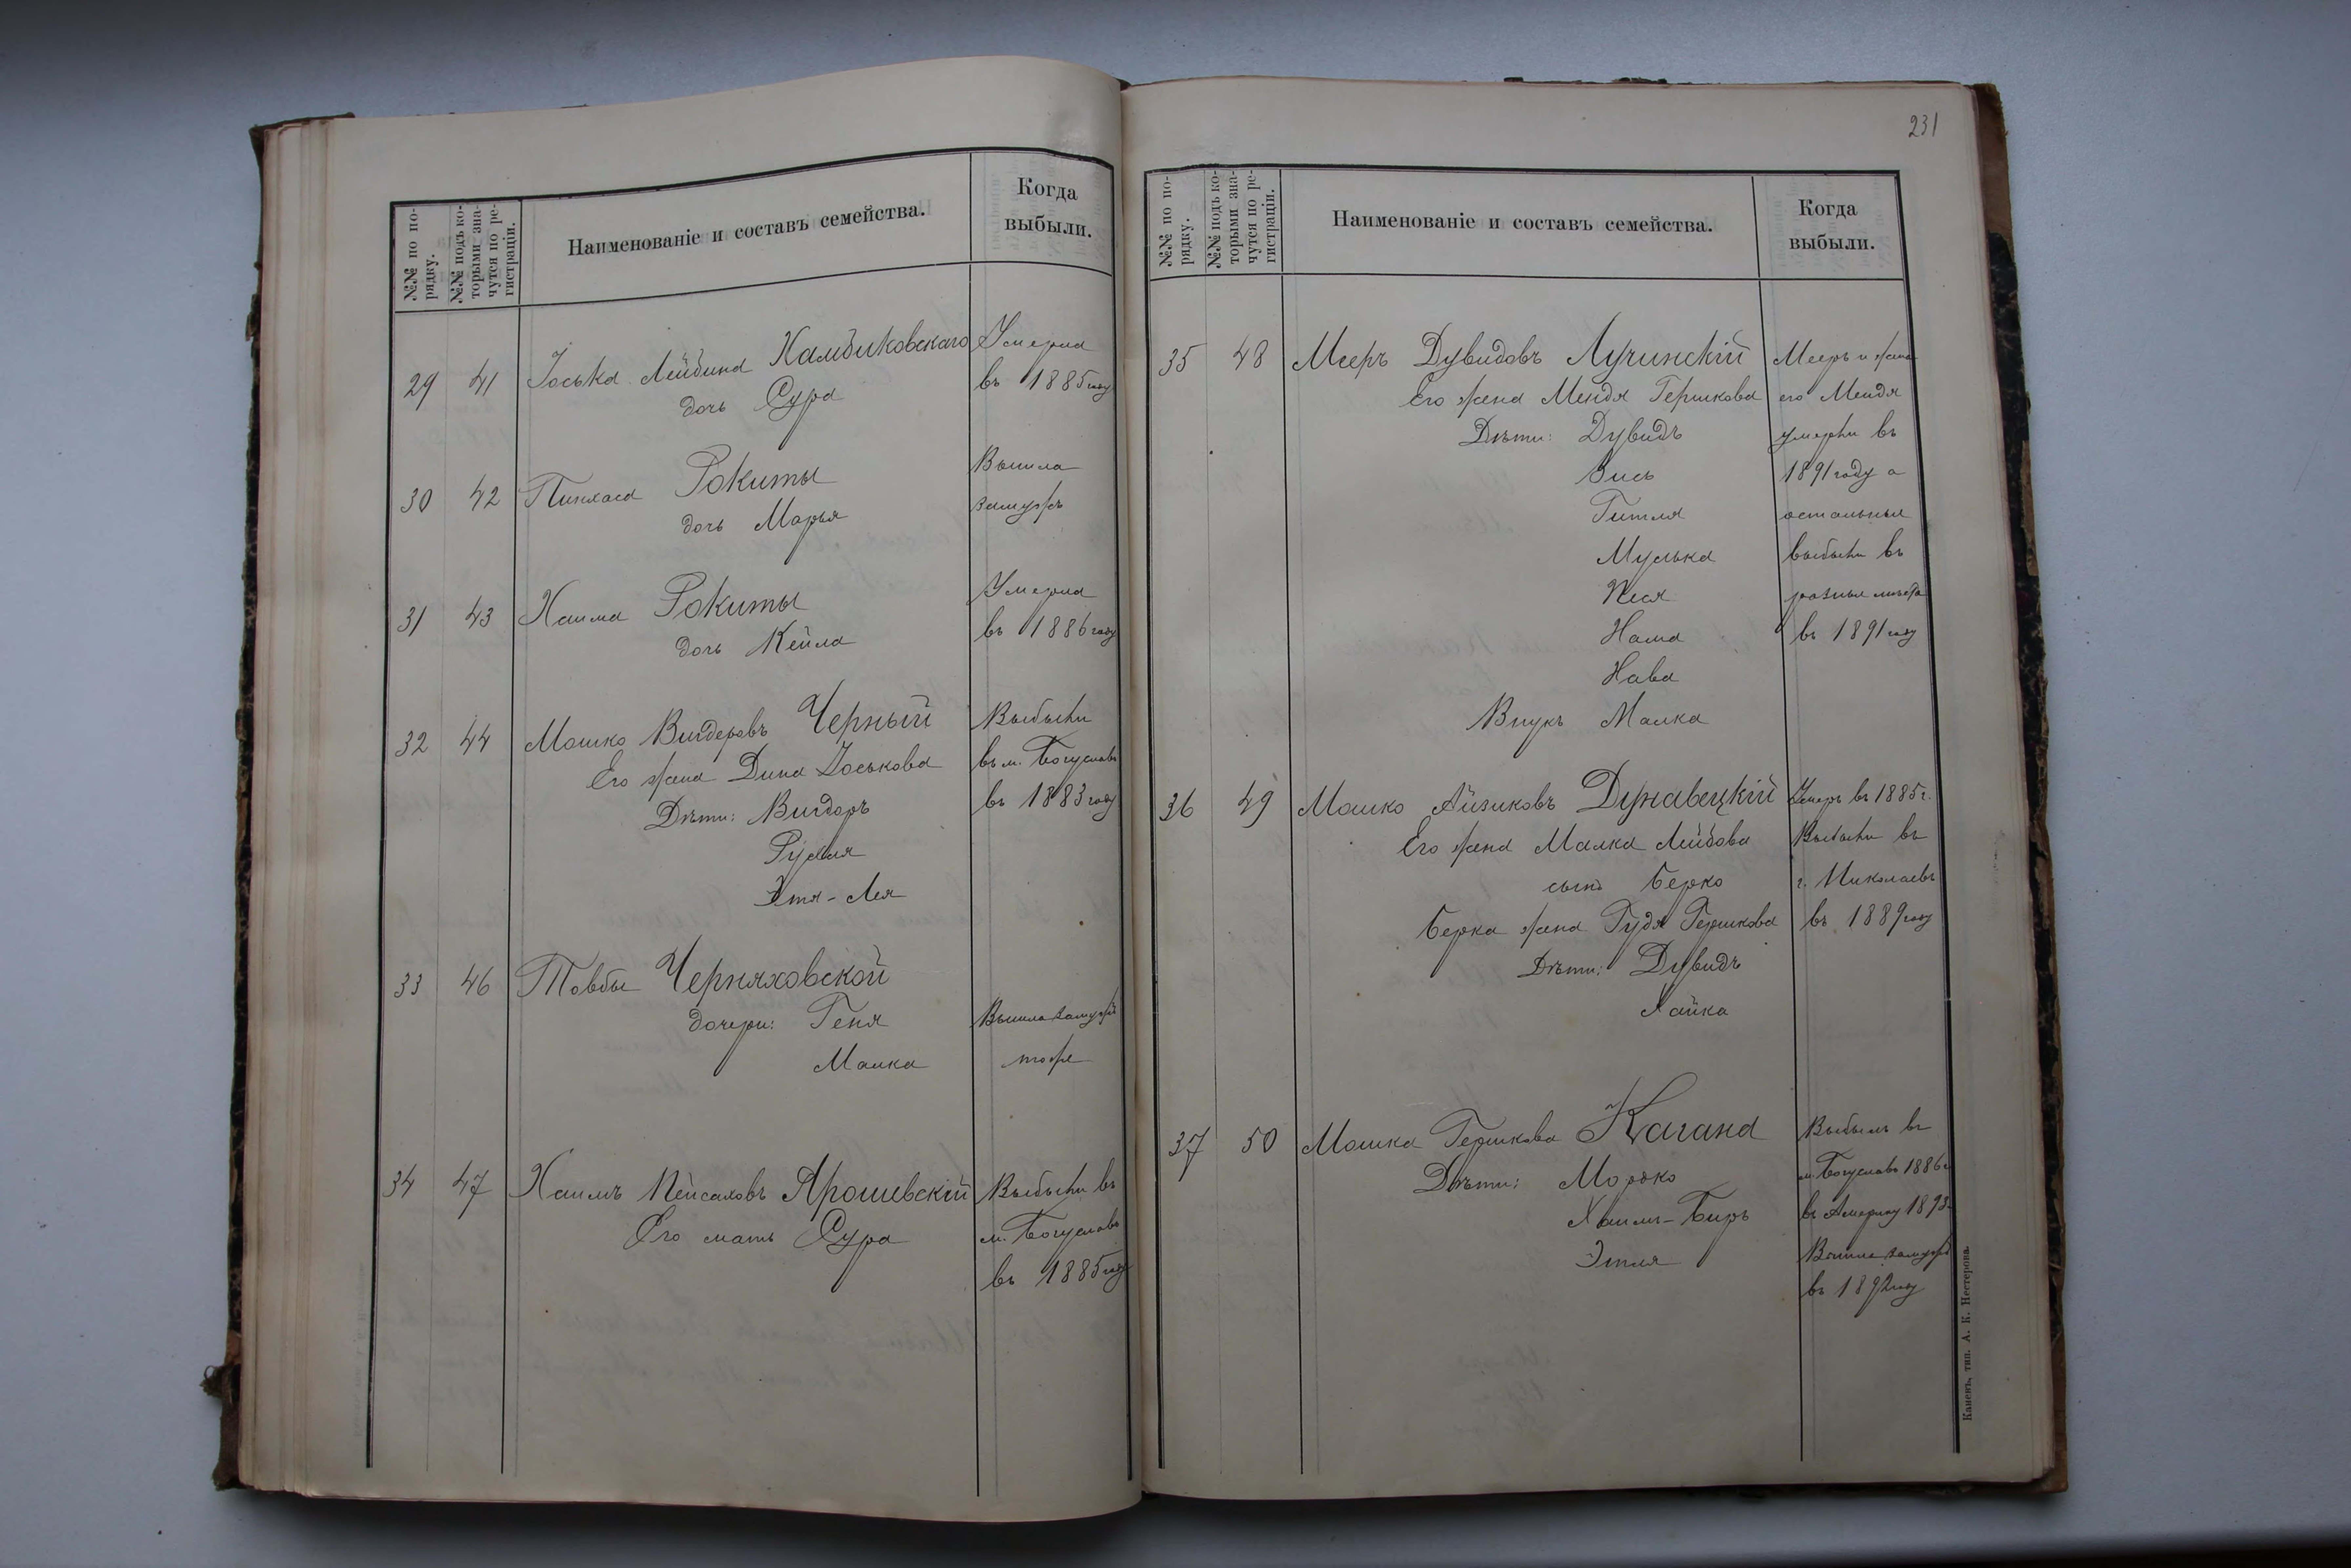 №№ по по-
рядку.
№№ подъ ко-
торыми зна-
чутся по ре-
гистраціи.
Наименованіе и составъ семейства.
Когда
выбыли.
29 41 Іоська Лейбина Хамбиковскаго Умерла
дочь Сура въ 1885 году
30 42 Пинхаса Рокиты Вышла
дочь Марья замужъ
31 43 Хаима Рокиты Умерла
дочь Кейла въ 1886 году
32 44 Мошко Вигдоровъ Черный Выбыли
Его жена Дина Іоськова въ м. Богуславъ
Дѣти: Вигдоръ въ 1883 году
Рухля
Этя-Лея
33 46 Товбы Черняховской
дочери: Геня Вышла замужъ
Малка тоже
34 47 Хаимъ Пейсаховъ Ярошевскій Выбыли въ
Его мать Сура м. Богуславъ
въ 1885 году
231
№№ по по-
рядку.
№№ подъ ко-
торыми зна-
чутся по ре-
гистраціи.
Наименованіе и составъ семейства.
Когда
выбыли.
35 48 Мееръ Дувидовъ Лучинскій Мееръ и жена
Его жена Мендя Гершкова его Мендя
Дѣти: Дувидъ умерли въ
Зись 1891 году а
Гитля остальные
Мулька выбыли въ
Песя разныя мѣста
Хата въ 1891 году
Хава
Внукъ Малка
36 49 Мошко Айзиковъ Дунавецкій Умеръ въ 1885 г.
Его жена Малка Лейбова Выбыли въ
сынъ Берко г. Николаевъ
Берка жена Гудя Гершкова въ 1889 году
Дѣти: Дувидъ
Хайка
37 50 Мошка Гершкова Кагана Выбылъ въ
Дѣти: Мордко м. Богуславъ 1886 г.
Хаимъ-Биръ въ Америку 1893
Этля Вышла замужъ
въ 1892 году
Каневъ, тип. А. К. Нестерова.